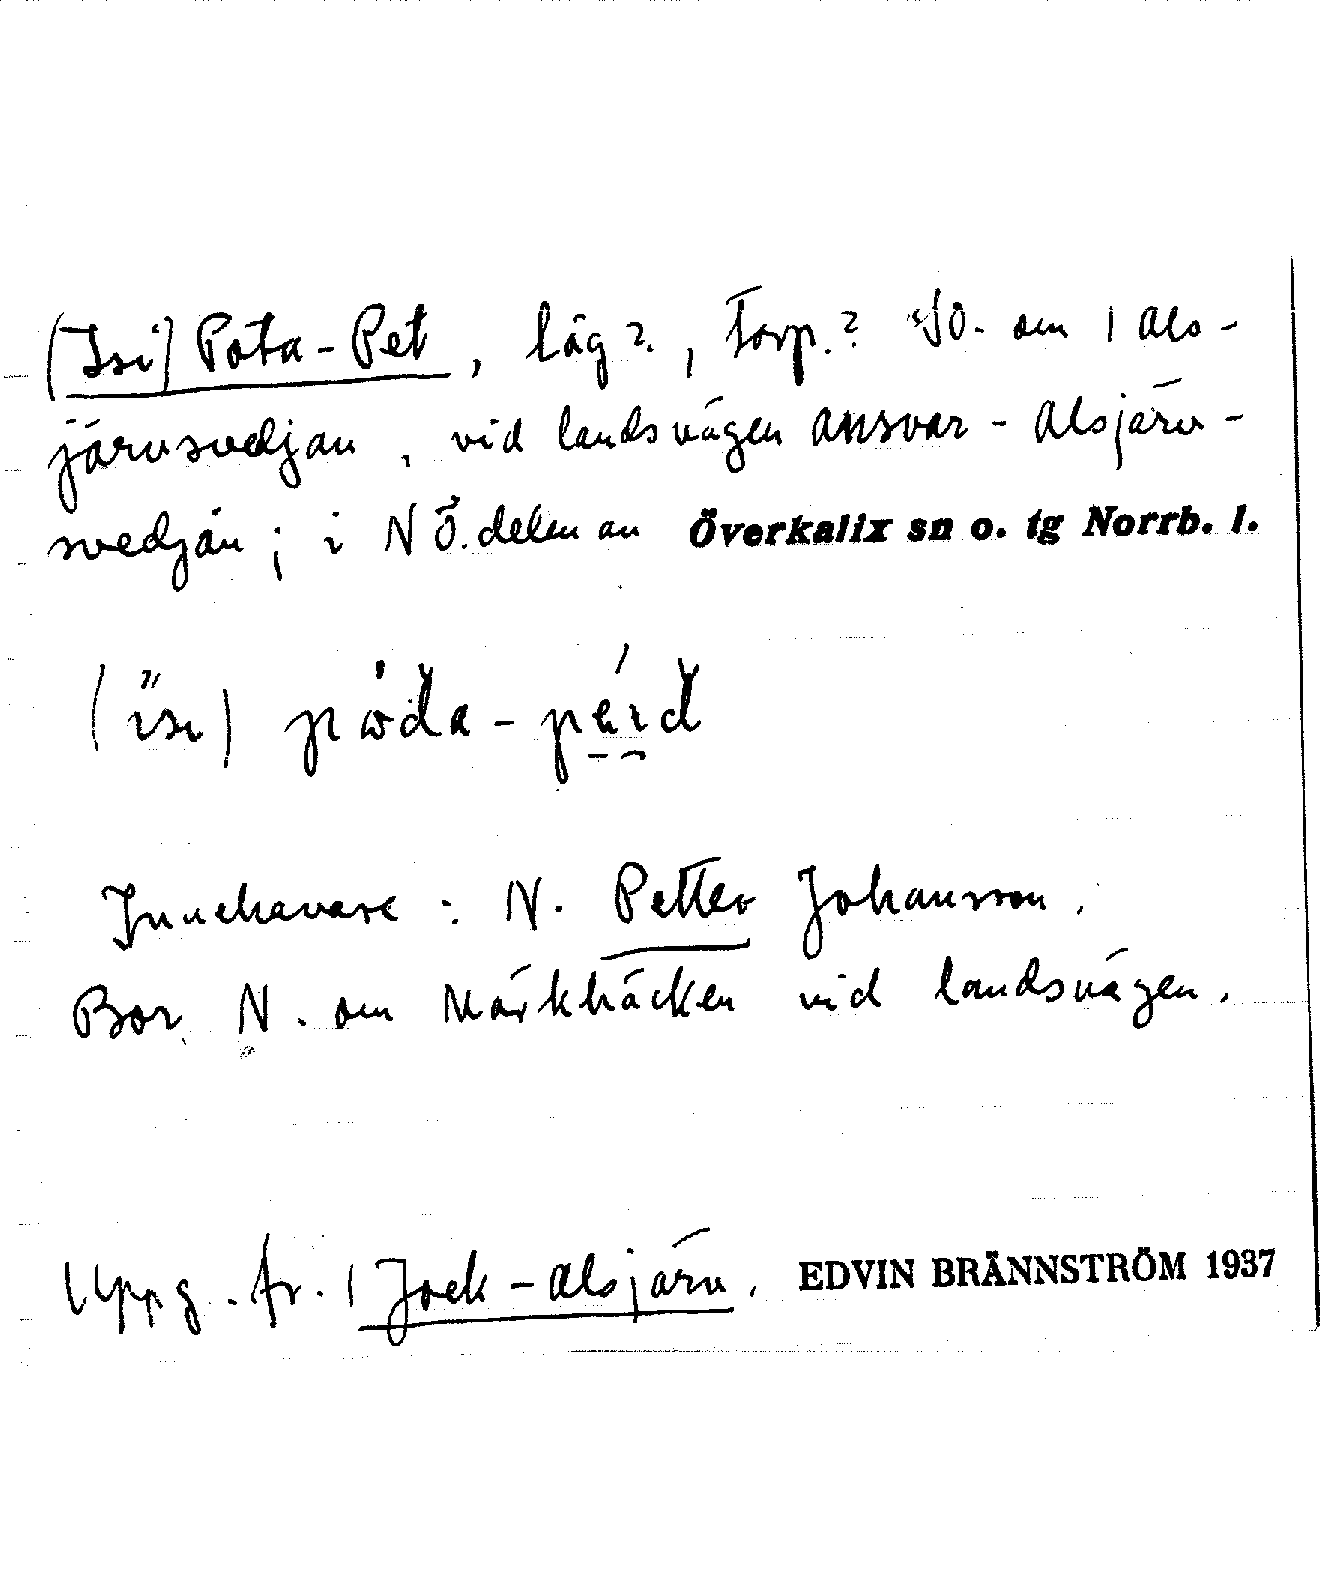 (Isi) Pota-Pet, läg?., Torp.? SO. om 1 Als-
järvsvedjan, vid landsvägen Ansvar - Alsjärv-
svedjan; i NÖ. delen av Överkalix sn o. tg Norrb. l.
(ısı) pòđa-péıđ
Innehavare: N. Petter Johansson.
Bor N. om Märkbäcken vid landsvägen.
Uppg. fr. 1 Jock-Alsjärv. EDVIN BRÄNNSTRÖM 1937